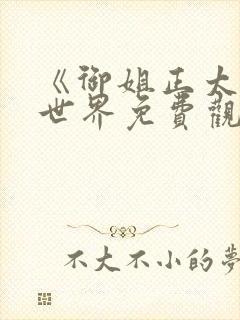 《御姐正大
世界免費觀
不大不小的夢